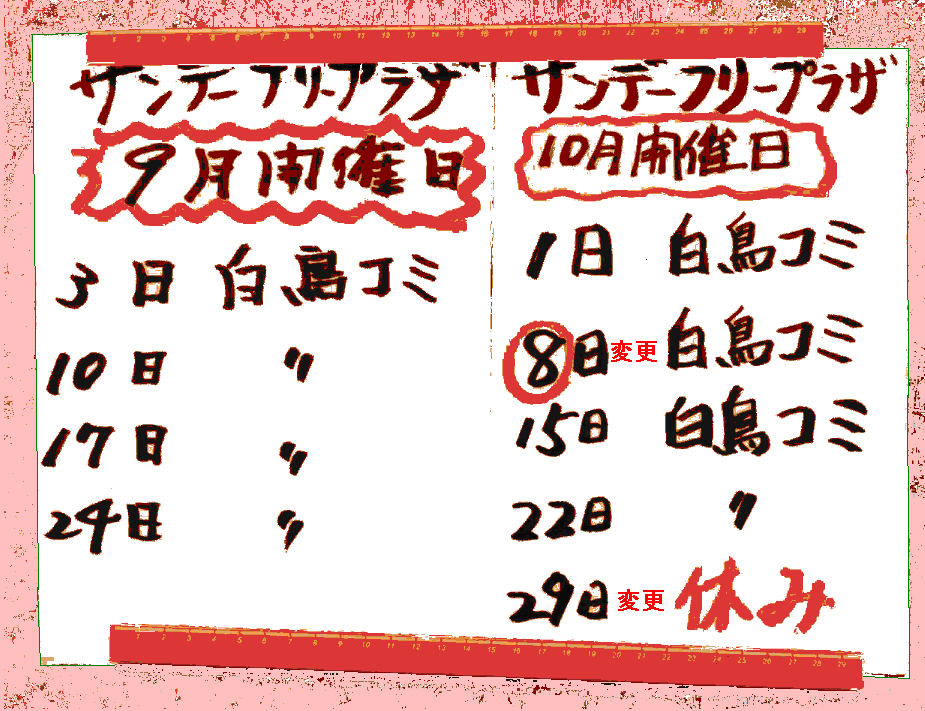 サンデーフリープラザ
9月開催日
3日 白鳥コミ
10日 〃
17日 〃
24日 〃
サンデーフリープラザ
10月開催日
1日 白鳥コミ
8日 変更 白鳥コミ
15日 白鳥コミ
22日 〃
29日 変更 休み